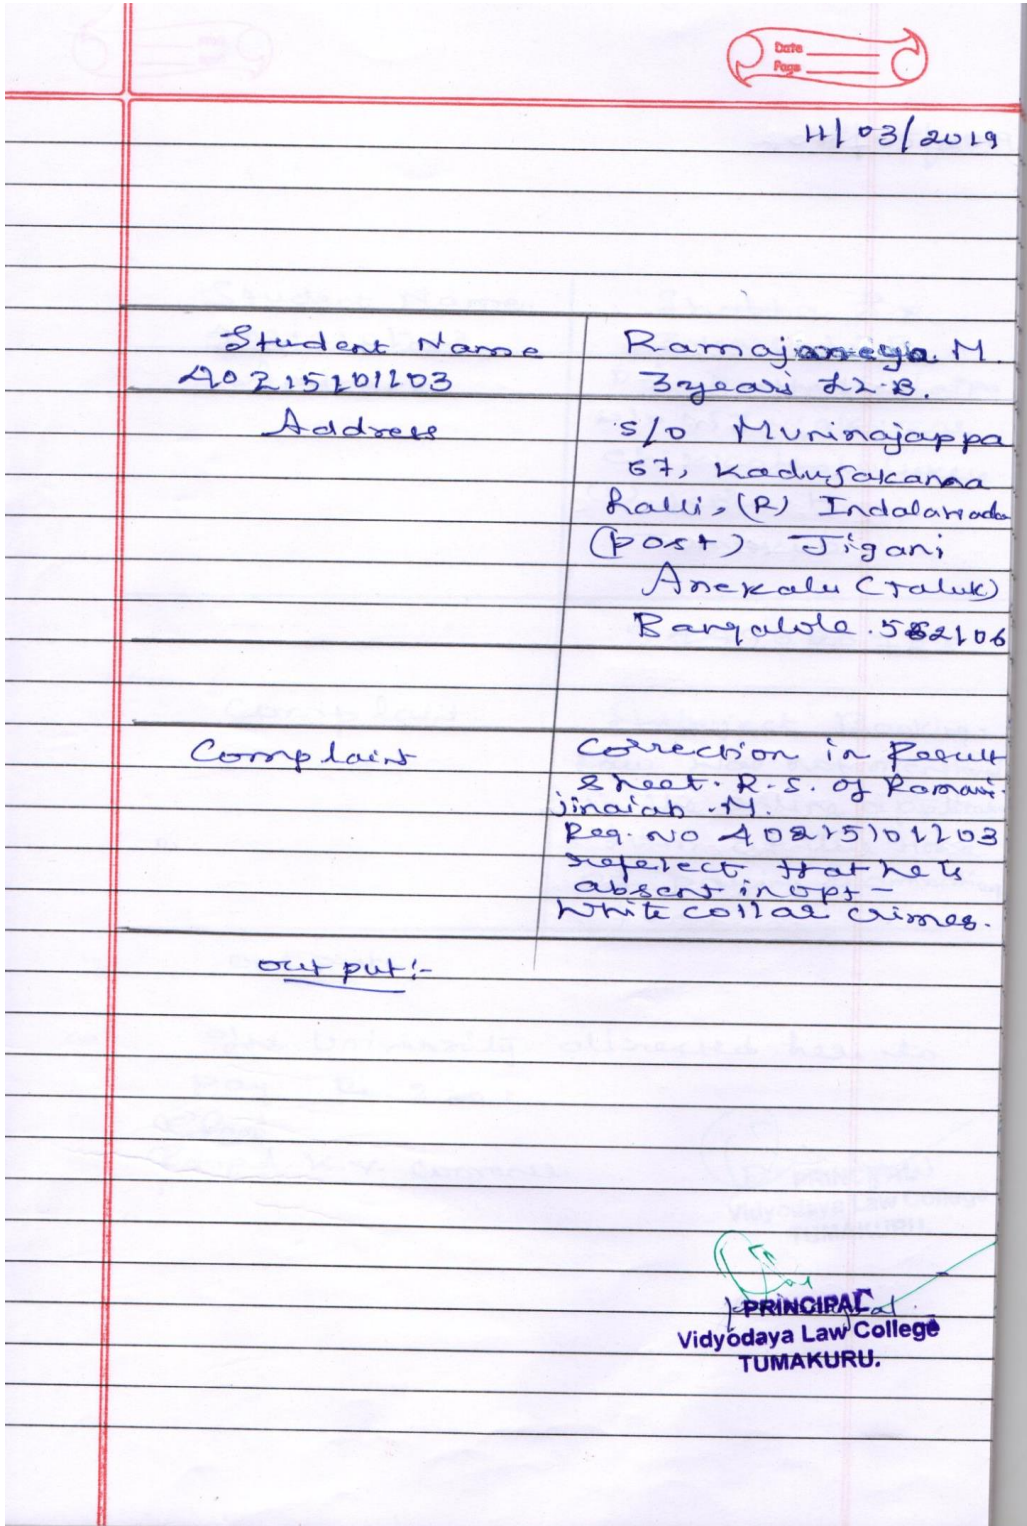 Date
Page
11/03/2019
Student Name Ramajaneya. M.
A0215101103 3 years LL.B.
Address S/o Munirajappa
67, Kadujakanna
halli, (R) Indalawada
(Post) Jigani
Anekalu (Taluk)
Bangalole. 562106
Complaint Correction in Result
Sheet. R.S. of Raman
jinaiah. M.
Reg. No A0215101103
referect that he is
absent in opt-
White collar crimes.
Out put:-
PRINCIPAL
Vidyodaya Law College
TUMAKURU.